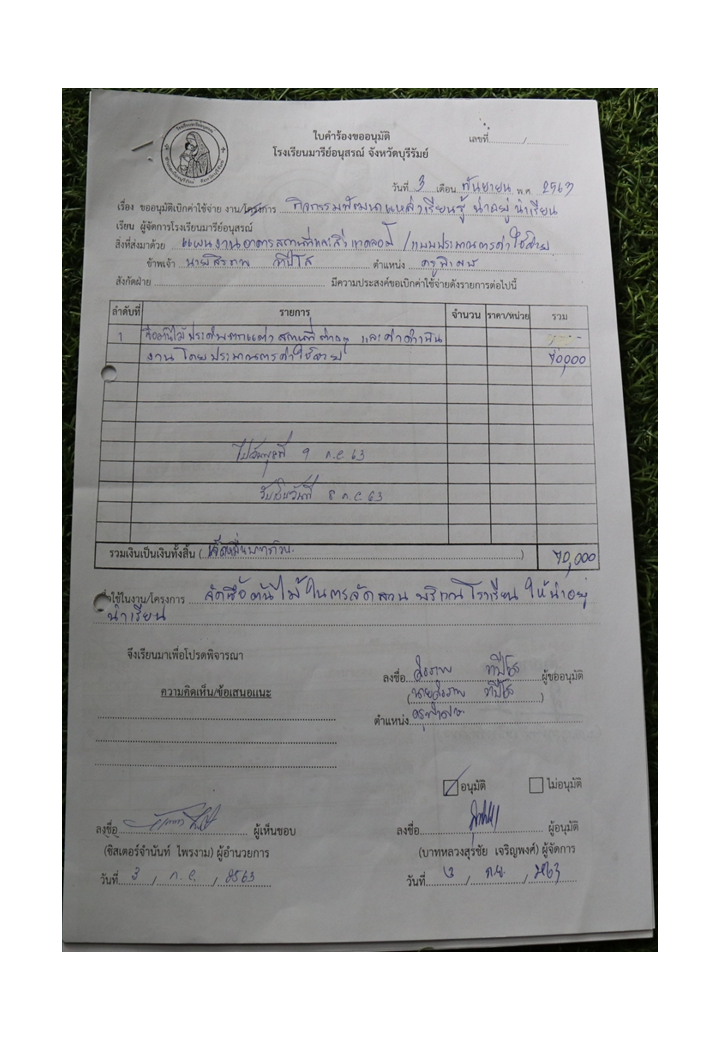 ใบคำร้องขออนุมัติ
เลขที่............/............
โรงเรียนมารีย์อนุสรณ์ จังหวัดบุรีรัมย์
วันที่ 3 เดือน กันยายน พ.ศ. 2563
เรื่อง ขออนุมัติเบิกค่าใช้จ่าย งาน/โครงการ กิจกรรมพัฒนาแหล่งเรียนรู้ น่าอยู่ น่าเรียน
เรียน ผู้จัดการโรงเรียนมารีย์อนุสรณ์
สิ่งที่ส่งมาด้วย แผนงานอาคารสถานที่และสิ่งแวดล้อม / แบบประมาณการค่าใช้จ่าย
ข้าพเจ้า ตำแหน่ง ครูพิเศษ
สังกัดฝ่าย มีความประสงค์ขอเบิกค่าใช้จ่ายดังรายการต่อไปนี้
ลำดับที่ รายการ จำนวน ราคา/หน่วย รวม
1 ซื้อต้นไม้ประดับตกแต่งสถานที่ต่างๆ และค่าดำเนิน
งาน โดยประมาณการค่าใช้จ่าย 70,000
9 ก.ย. 63
รับเงินวันที่ 8 ก.ย. 63
รวมเงินเป็นเงินทั้งสิ้น (เจ็ดหมื่นบาทถ้วน) 70,000
เพื่อใช้ในงาน/โครงการ จัดซื้อต้นไม้ในการจัดสวน บริเวณโรงเรียน ให้น่าอยู่
น่าเรียน
จึงเรียนมาเพื่อโปรดพิจารณา
ลงชื่อ ผู้ขออนุมัติ
ความคิดเห็น/ข้อเสนอแนะ
ตำแหน่ง ครูพิเศษ
อนุมัติ ไม่อนุมัติ
ลงชื่อ ผู้เห็นชอบ ลงชื่อ ผู้อนุมัติ
(ซิสเตอร์จำนันท์ ไพรงาม) ผู้อำนวยการ (บาทหลวงสุรชัย เจริญพงศ์) ผู้จัดการ
วันที่ 3 / ก.ย. / 2563 วันที่ / ก.ย. / 2563